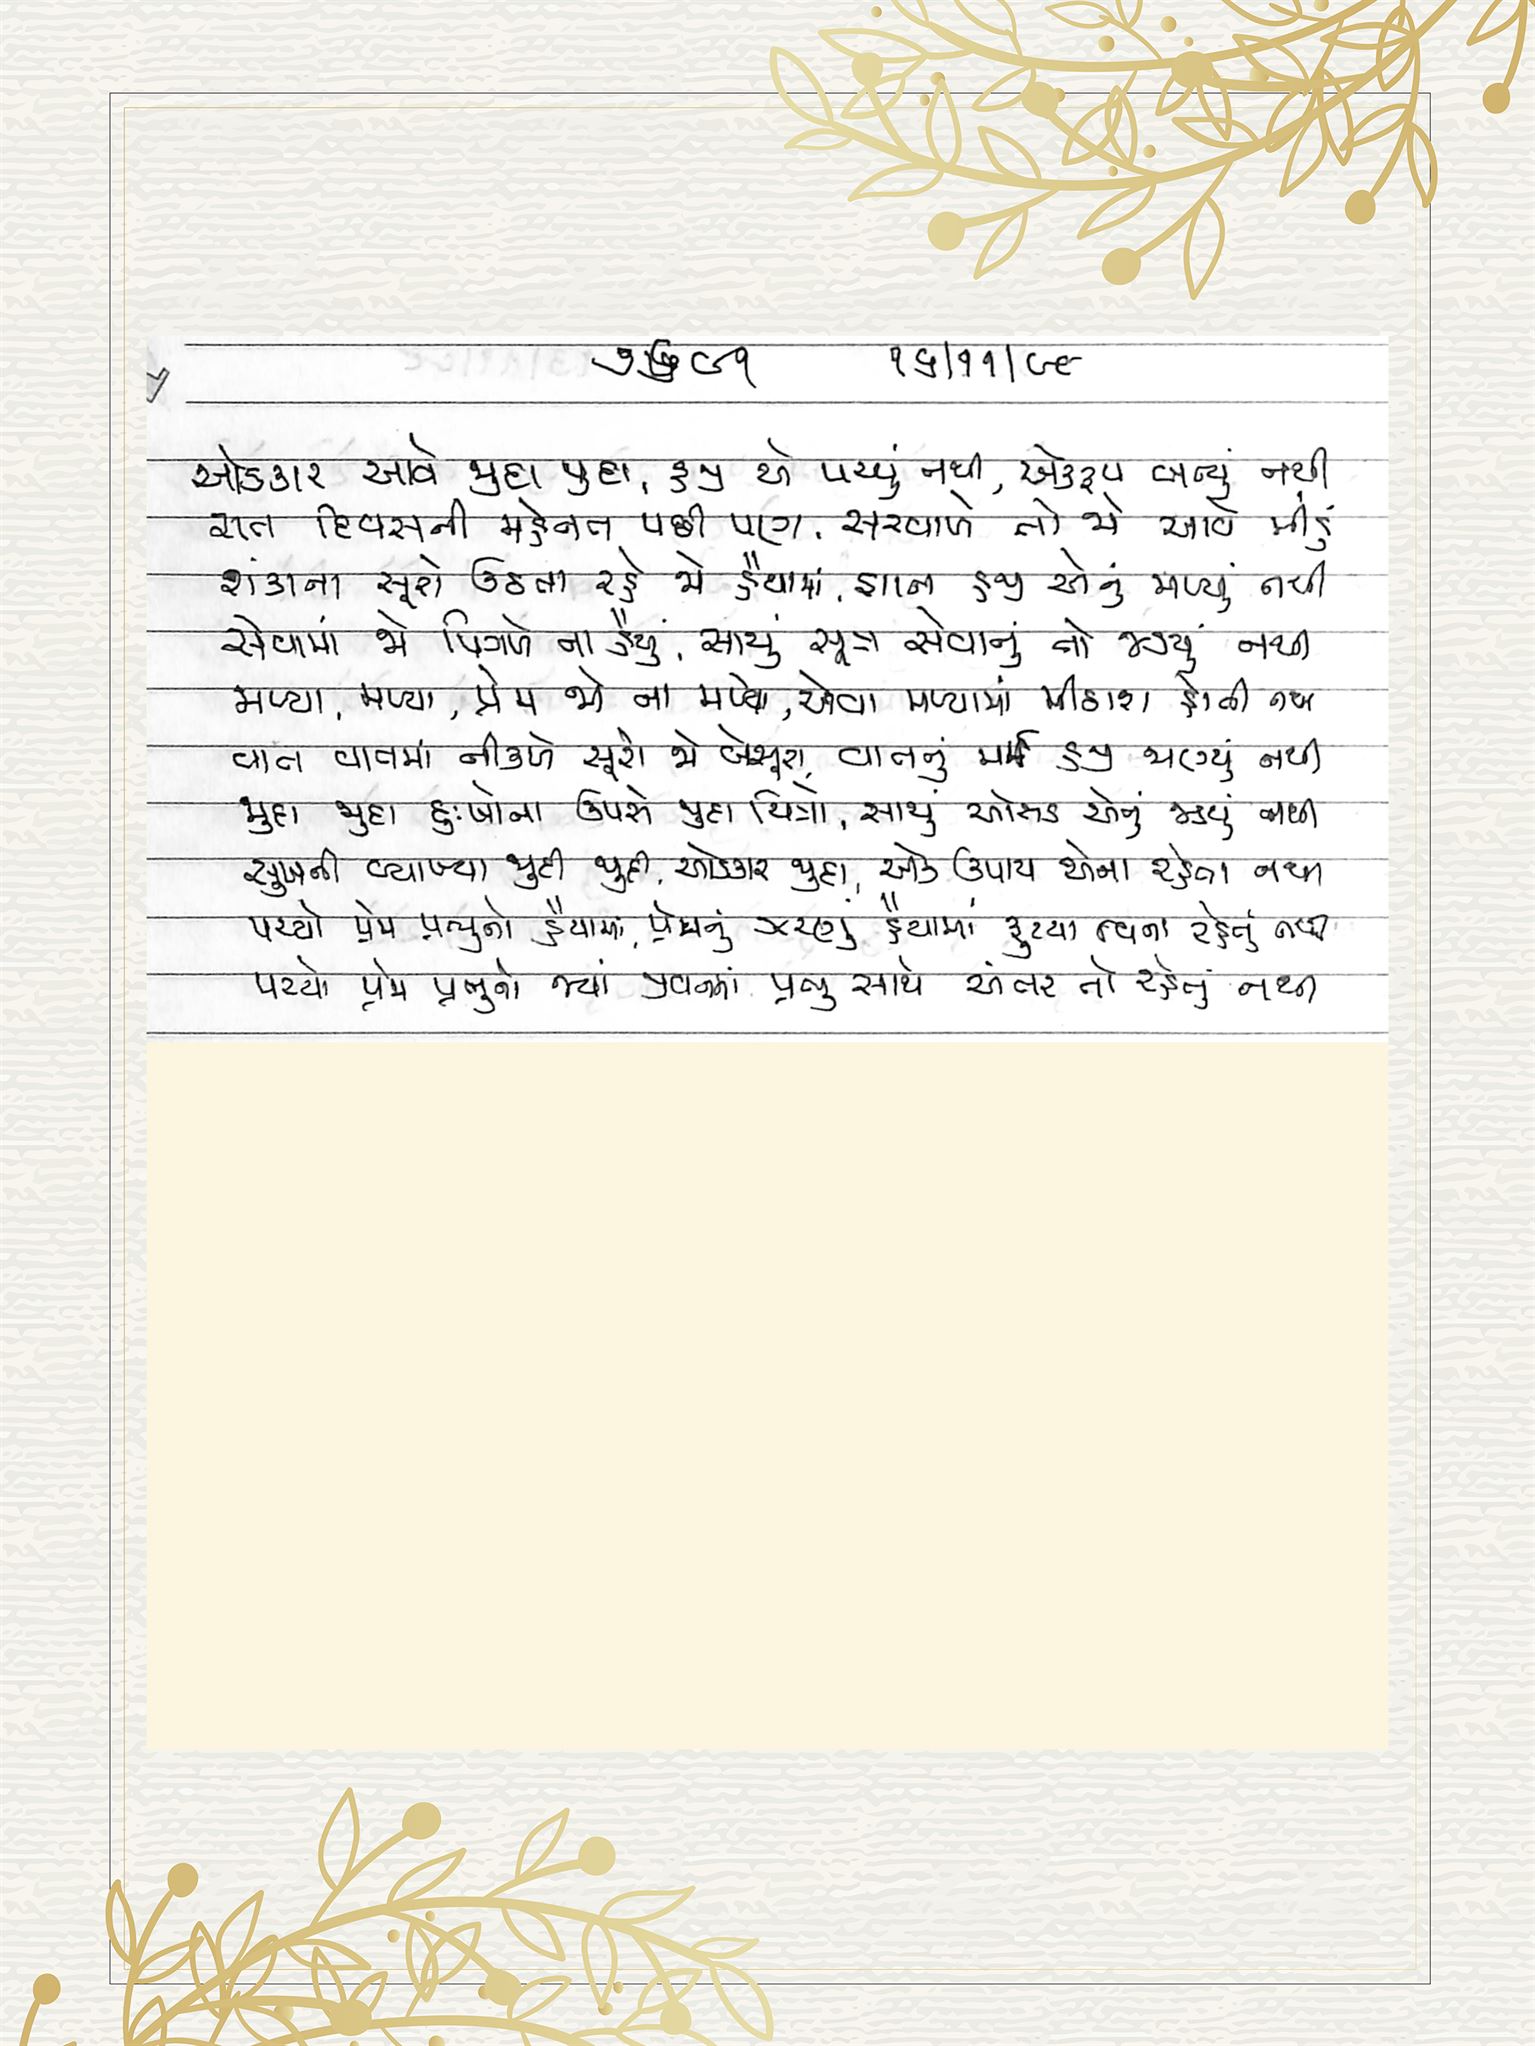 ૭૬૯૧ ૧૬/૧૧/૯૮
ઓડકાર આવે જુદા જુદા, હજી એ પચ્યું નથી, એકરૂપ બન્યું નથી
રાત દિવસની મહેનત પછી પણ, સરવાળે તો જો આવે મીંડું
શંકાના સૂરો ઉઠતા રહે જો હૈયામાં, જ્ઞાન હજી એનું મળ્યું નથી
સેવામાં જો પિગળે ના હૈયું, સાચું સૂત્ર સેવાનું તો જડયું નથી
મળ્યા, મળ્યા, પ્રેમ જો ના મળ્યા, એવા મળ્યામાં મીઠાશ હોતી નથી
વાત વાતમાં નીકળે સૂરો જો બેસૂરા, વાતનું મર્મ હજી જાણ્યું નથી
જુદા જુદા દુઃખોના ઉપસે જુદા ચિત્રો, સાચું ઓસડ એનું જડયું નથી
સુખની વ્યાખ્યા જુદી જુદી, ઓડકાર જુદા, એક ઉપાય એના રહેતા નથી
પચ્યો પ્રેમ પ્રભુનો હૈયામાં, પ્રેમનું ઝરણું હૈયામાં ફુટયા વિના રહેતું નથી
પચ્યો પ્રેમ પ્રભુનો જ્યાં જીવનમાં પ્રભુ સાથે અંતર તો રહેતું નથી